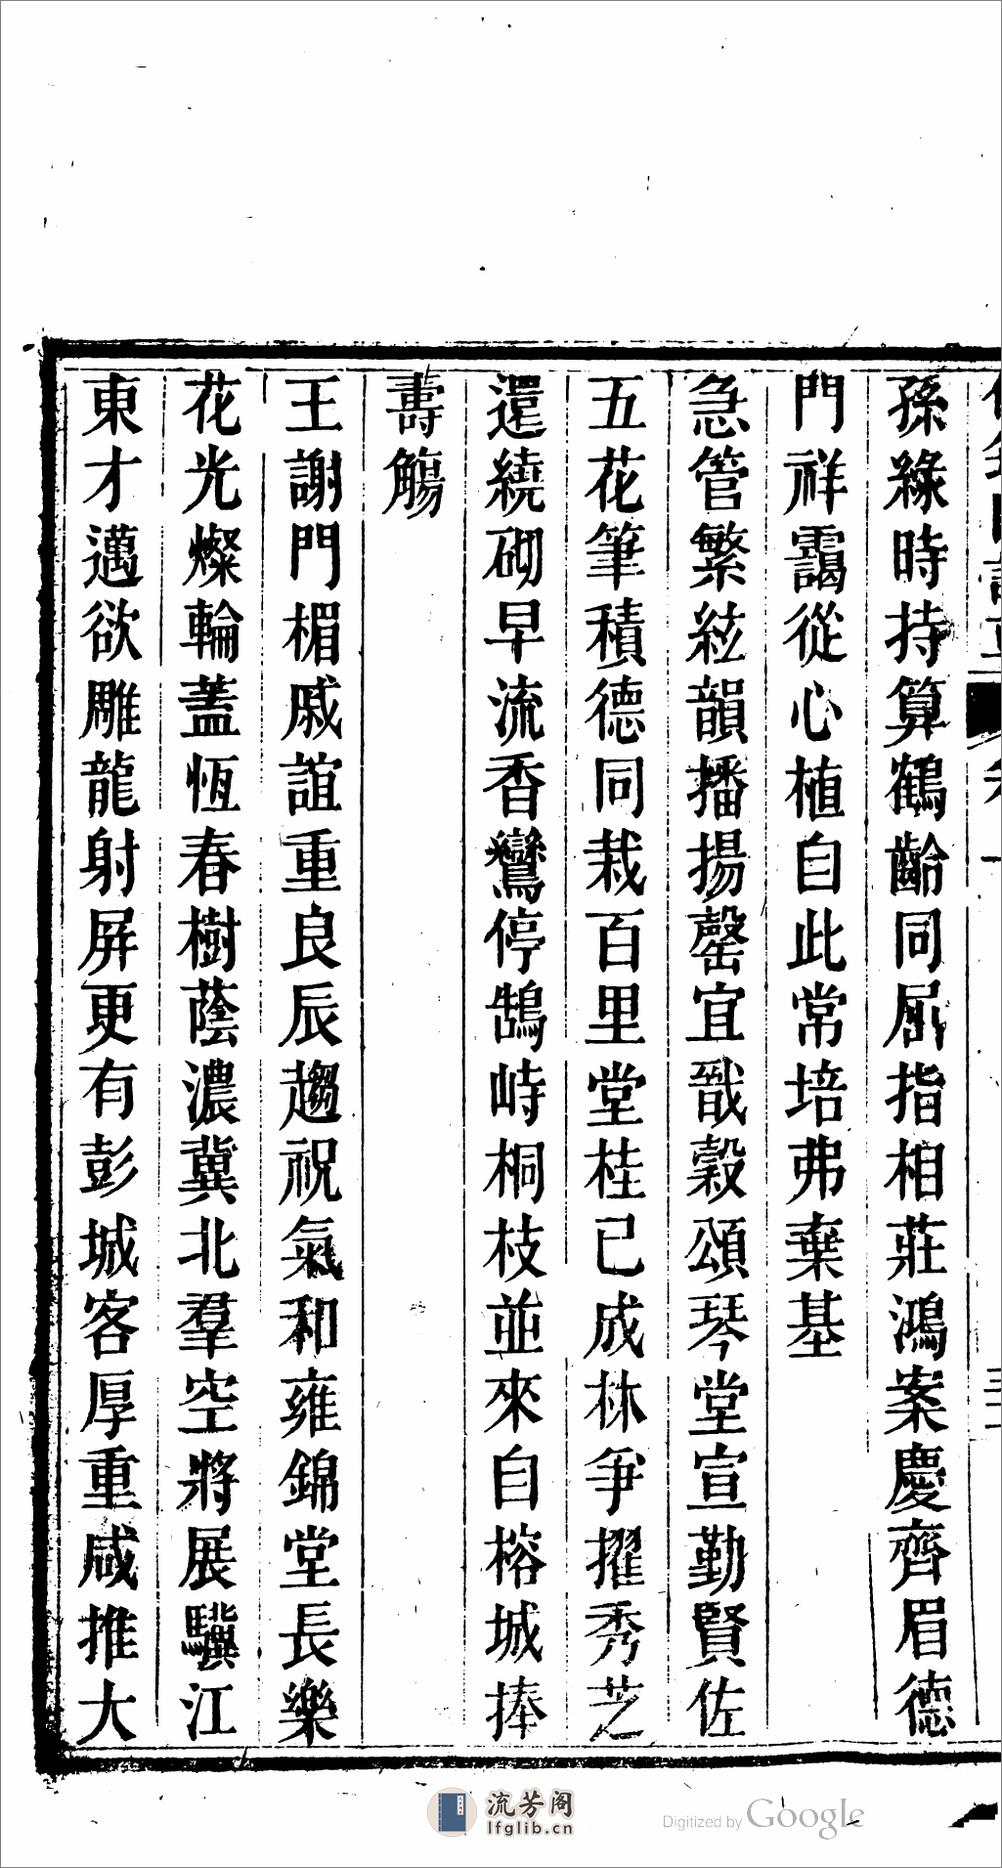 孫綠時持算鶴齡同屈指相莊鴻案慶齊眉德
門祥靄從心植自此常培弗棄基
急管繁絃韻播揚罄宜戩穀頌琴堂堂宣勤賢佐
五花筆積德同栽百里堂桂已成林爭擢秀芝
還繞砌早流香鸞停鵠峙桐枝並來自榕城捧
壽觴
王謝門楣戚誼重良辰趨祝氣和雍錦堂長樂
花光燦輪蓋恆春樹蔭濃冀北羣空將展驥江
東才邁欲雕龍射屏更有彭城客厚重咸推大
流芳阁
lfglib.cn
Digitized by Google